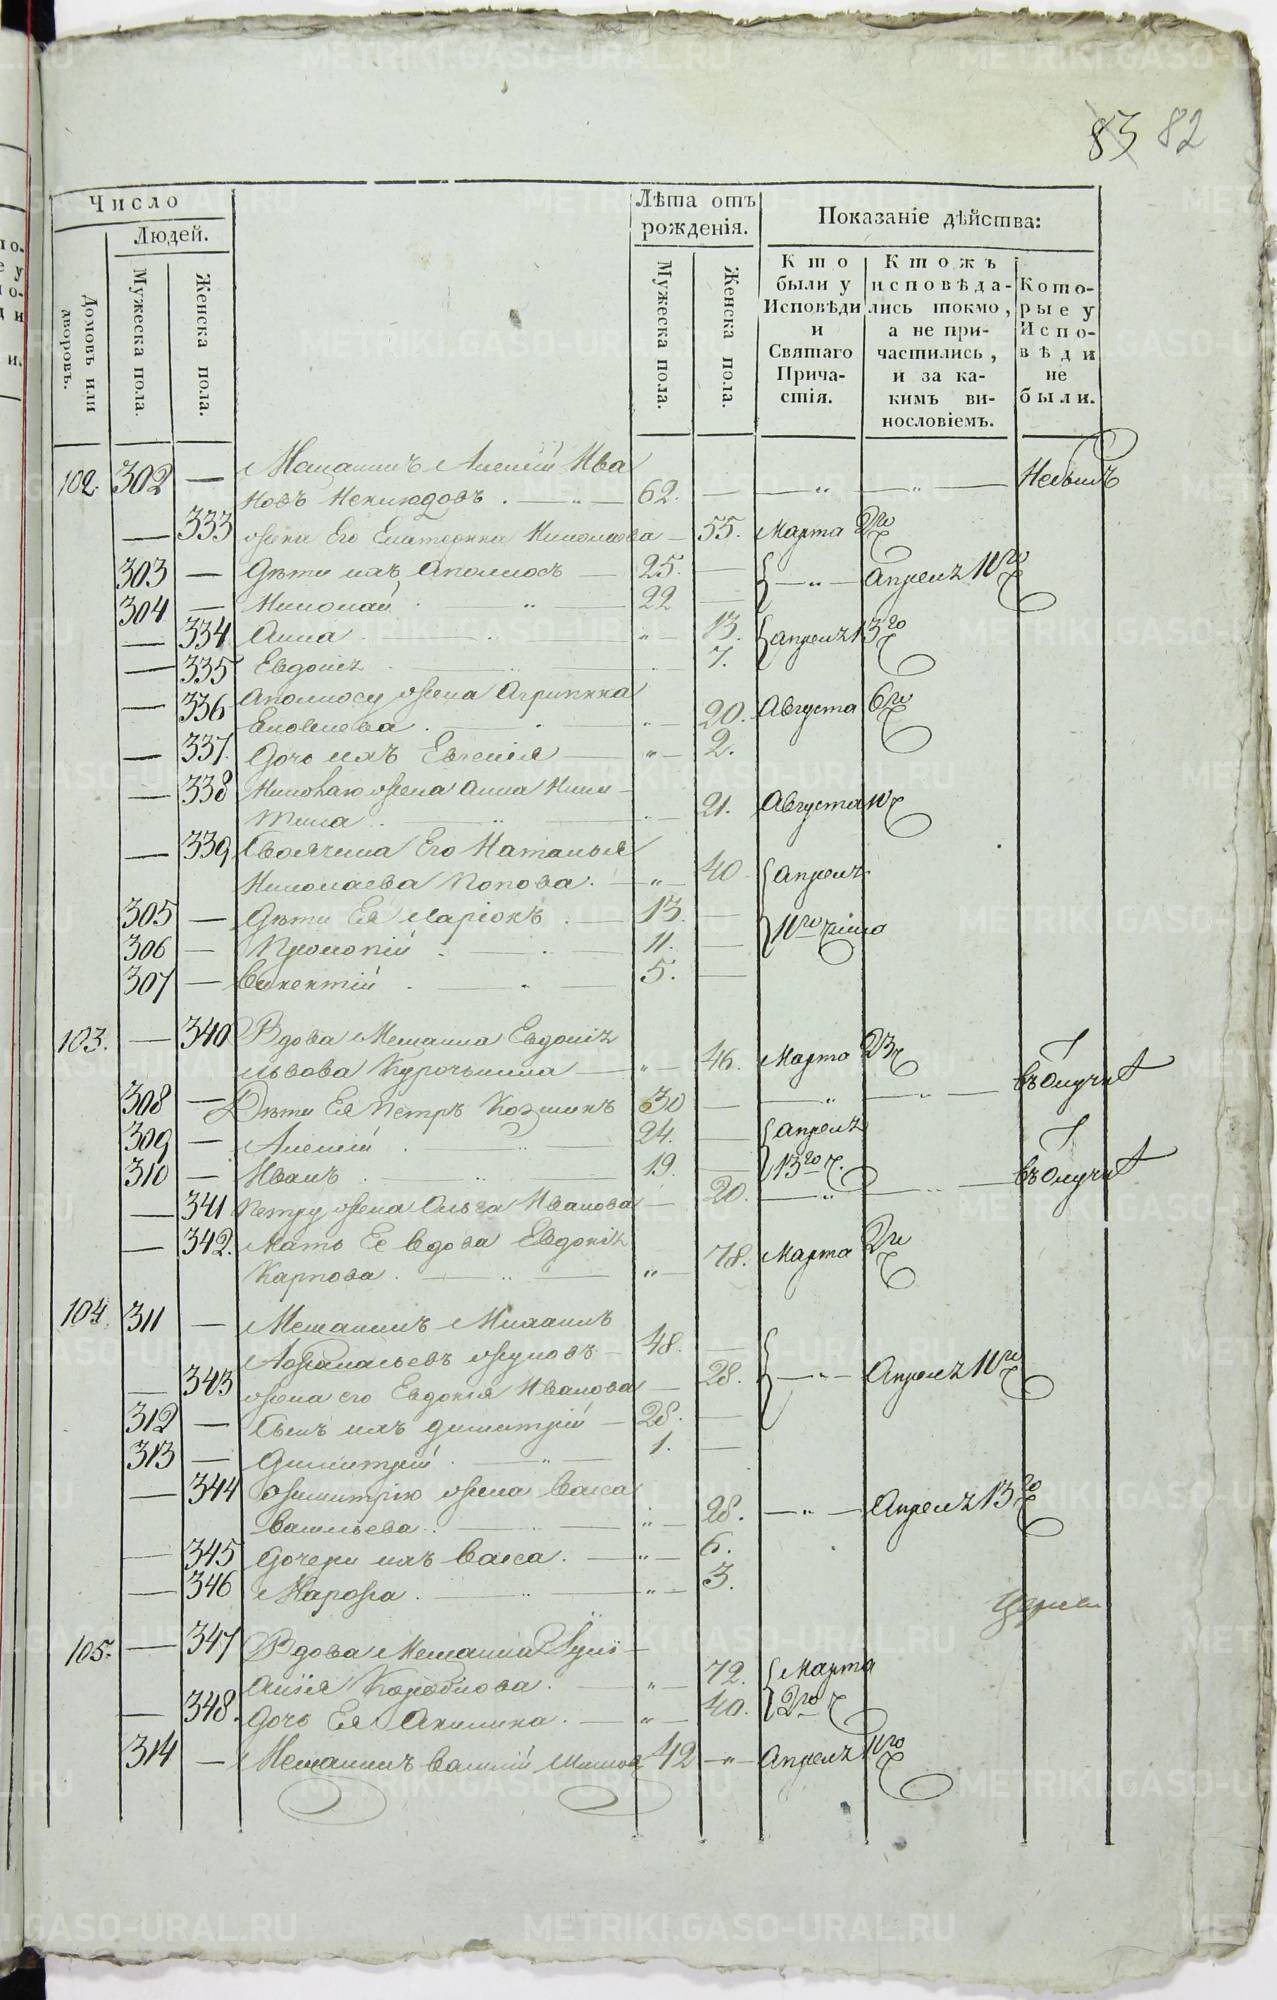 83 82
Число
Людей.
Домовъ или дворовъ.
Мужеска пола.
Женска пола.
Лѣта отъ рожденія.
Мужеска пола.
Женска пола.
Показаніе дѣйства:
Кто были у Исповѣди и Святаго Причастія.
Ктожъ исповѣдались токмо, а не причастились, и за какимъ винословіемъ.
Которые у Исповѣди не были.
102. 302 — Мещанинъ Алексій Ива
новъ Неклюдовъ . — 62. — небылъ
— 333 жена Его Екатерина Николаева — 55. Марта 2го
303 — Дѣти ихъ Аполлосъ — 25. — Апреля 10го
304 — Николай — 22 —
— 334 Анна — 13. апреля 13го
— 335 Евдокія — 7.
— 336 Аполлосу жена Агрипина
— 20. Августа 6го
— 337. Дочь ихъ Евгенія — 2.
— 338 Николаю жена Анна Ники
тина — 21. Августа
— 339 Своячина Его Наталья
Николаева Попова. — 40 апреля
305 — Дѣти Ея Иларіонъ — 13. — 10го числа
306 — Прокопій — 11. —
307 — Викентій — 5. —
103. — 340 Вдова Мещанка Евдокія
Львова Курочькина — 46. Марта 23
308 — Дѣти Ея Петръ Козминъ 30 — въ отлучкѣ
309 — Алексій — 24. — апреля
310 — Иванъ — 19. — 13го
— 341 Петру жена Ольга Иванова — 20. — въ отлучкѣ
— 342. Мать Ее вдова Евдокія
Карпова. — 78. Марта 2го
104. 311 — Мещанинъ Михаилъ
Афанасьевъ — 48. —
— 343 жена его Евдокія Иванова — 28. Апреля 10го
312 — Сынъ ихъ Димитрій — 28. —
313 — Димитрій — 1. —
— 344 Димитрію жена Васса
Васильева. — 28. — Апреля 13го
— 345 Дочери ихъ Васса. — 6.
— 346 Марфа. — 3.
105. — 347 Вдова Мещанка Іулі
анія Коробкова. — 72. Марта
— 348. Дочь Ея Акилина. — 40. 2го
314 — Мещанинъ Василій 42 — Апреля 10го
METRIKI.GASO-URAL.RU